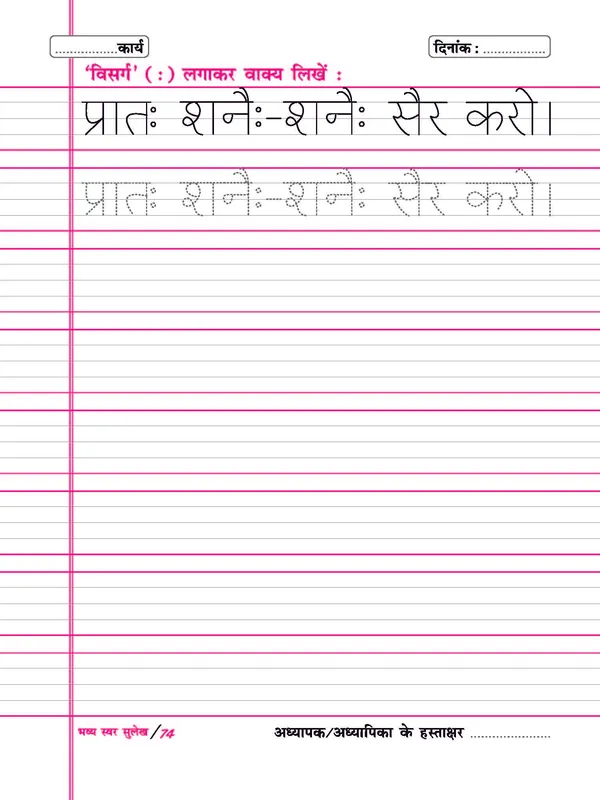 .................कार्य
दिनांक : .................
‘विसर्ग’ (:) लगाकर वाक्य लिखें :
प्रातः शनैः-शनैः सैर करो।
प्रातः शनैः-शनैः सैर करो।
भव्य स्वर सुलेख/74
अध्यापक/अध्यापिका के हस्ताक्षर ....................